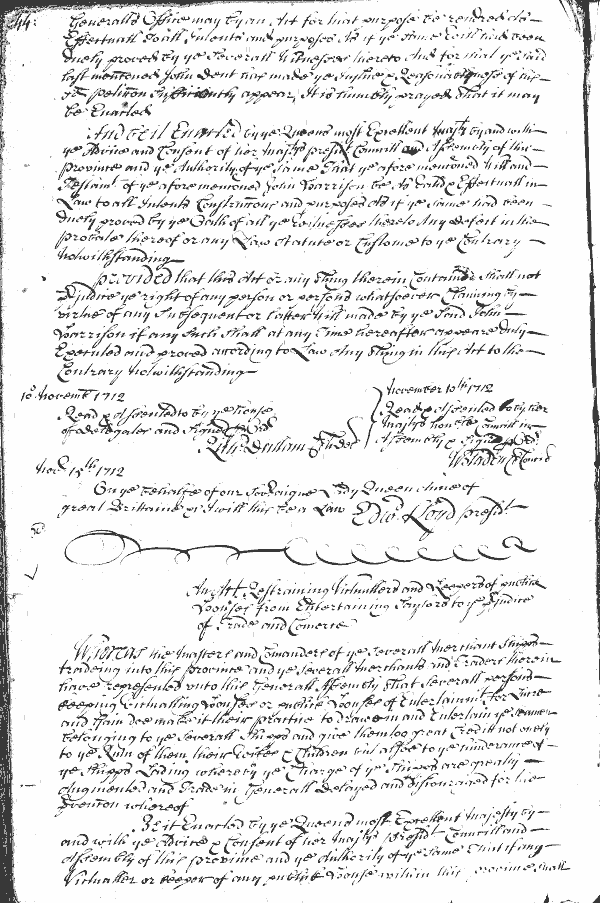 44:
Generalls Office may by an Act for that purpose be rendred as
Effectuall to all Intents and purposes As if ye same Will had been
duely proved by ye Severall Witnesses thereto And for that ye said
last mentioned John Dent has made ye Justice & Reasonableness of his
sd petition sufficiently appear, It is humbly prayed that it may
be Enacted
And be it Enacted by ye Queens most Excellent Majty by and with
ye Advice and Consent of her Majtys presidt Councill and Assembly of this
province and ye Authority of ye same That ye aforementioned Will and
Testamt of ye aforementioned John Harrison be As Valid & Effectuall in
Law to all Intents Constructions and purposes As if ye same had been
duely proved by ye Oath of all ye Witnesses thereto Any defect in the
probate thereof or any Law Statute or Custome to ye Contrary
Notwithstanding
provided that this Act or any thing therein Contained shall not
prjudice ye right of any person or persons whatsoever Claiming by
virtue of any Subsequent or latter Will made by ye Said John
Harrison if any Such shall at any time hereafter appear duly
Executed and proved according to Law Any thing in this Act to the
Contrary Notwithstanding
10o Novembr 1712
Read & Assented to by ye house
of Delegates and Signed
November 10th 1712
Read & Assented to by her
Majtys honble Councill in
Assembly & Signed
W Bladen Cl Council
Novr 15th 1712
On ye behalfe of our Soveraigne Lady Queen Anne of
great Brittaine &c I will this be a Law Edwd Lloyd presidt
An Act Restraining Victuallers and Keepers of publick
Houses from Entertaining Saylors to ye prjudice
of Trade and Comerce
Whereas the Masters and Comanders of ye Severall Merchant Shipps
tradeing into this province and ye Severall Merchants and Traders therein
have represented unto this Generall Assembly That Severall persons
keeping Victualling Houses or publick Houses of Entertainmt for Lucre
and Gain doe make it their practice to Draw in and Entertain ye Seamen
belonging to ye Severall Shipps and give them too great Creditt not only
to ye Ruin of them their Wives & Children but allsoe to ye hinderance of
ye Shipps Lading whereby ye Charge of ye Shipps are greatly
Augmented and Trade in Generall Delayed and discouraged for the
prvention whereof
Be it Enacted by ye Queens most Excellent Majesty by
and with ye Advice & Consent of her Majtys presidt Councill and
Assembly of this province and ye Authority of ye same That if any
Victualler or keeper of any publick House within this province shall